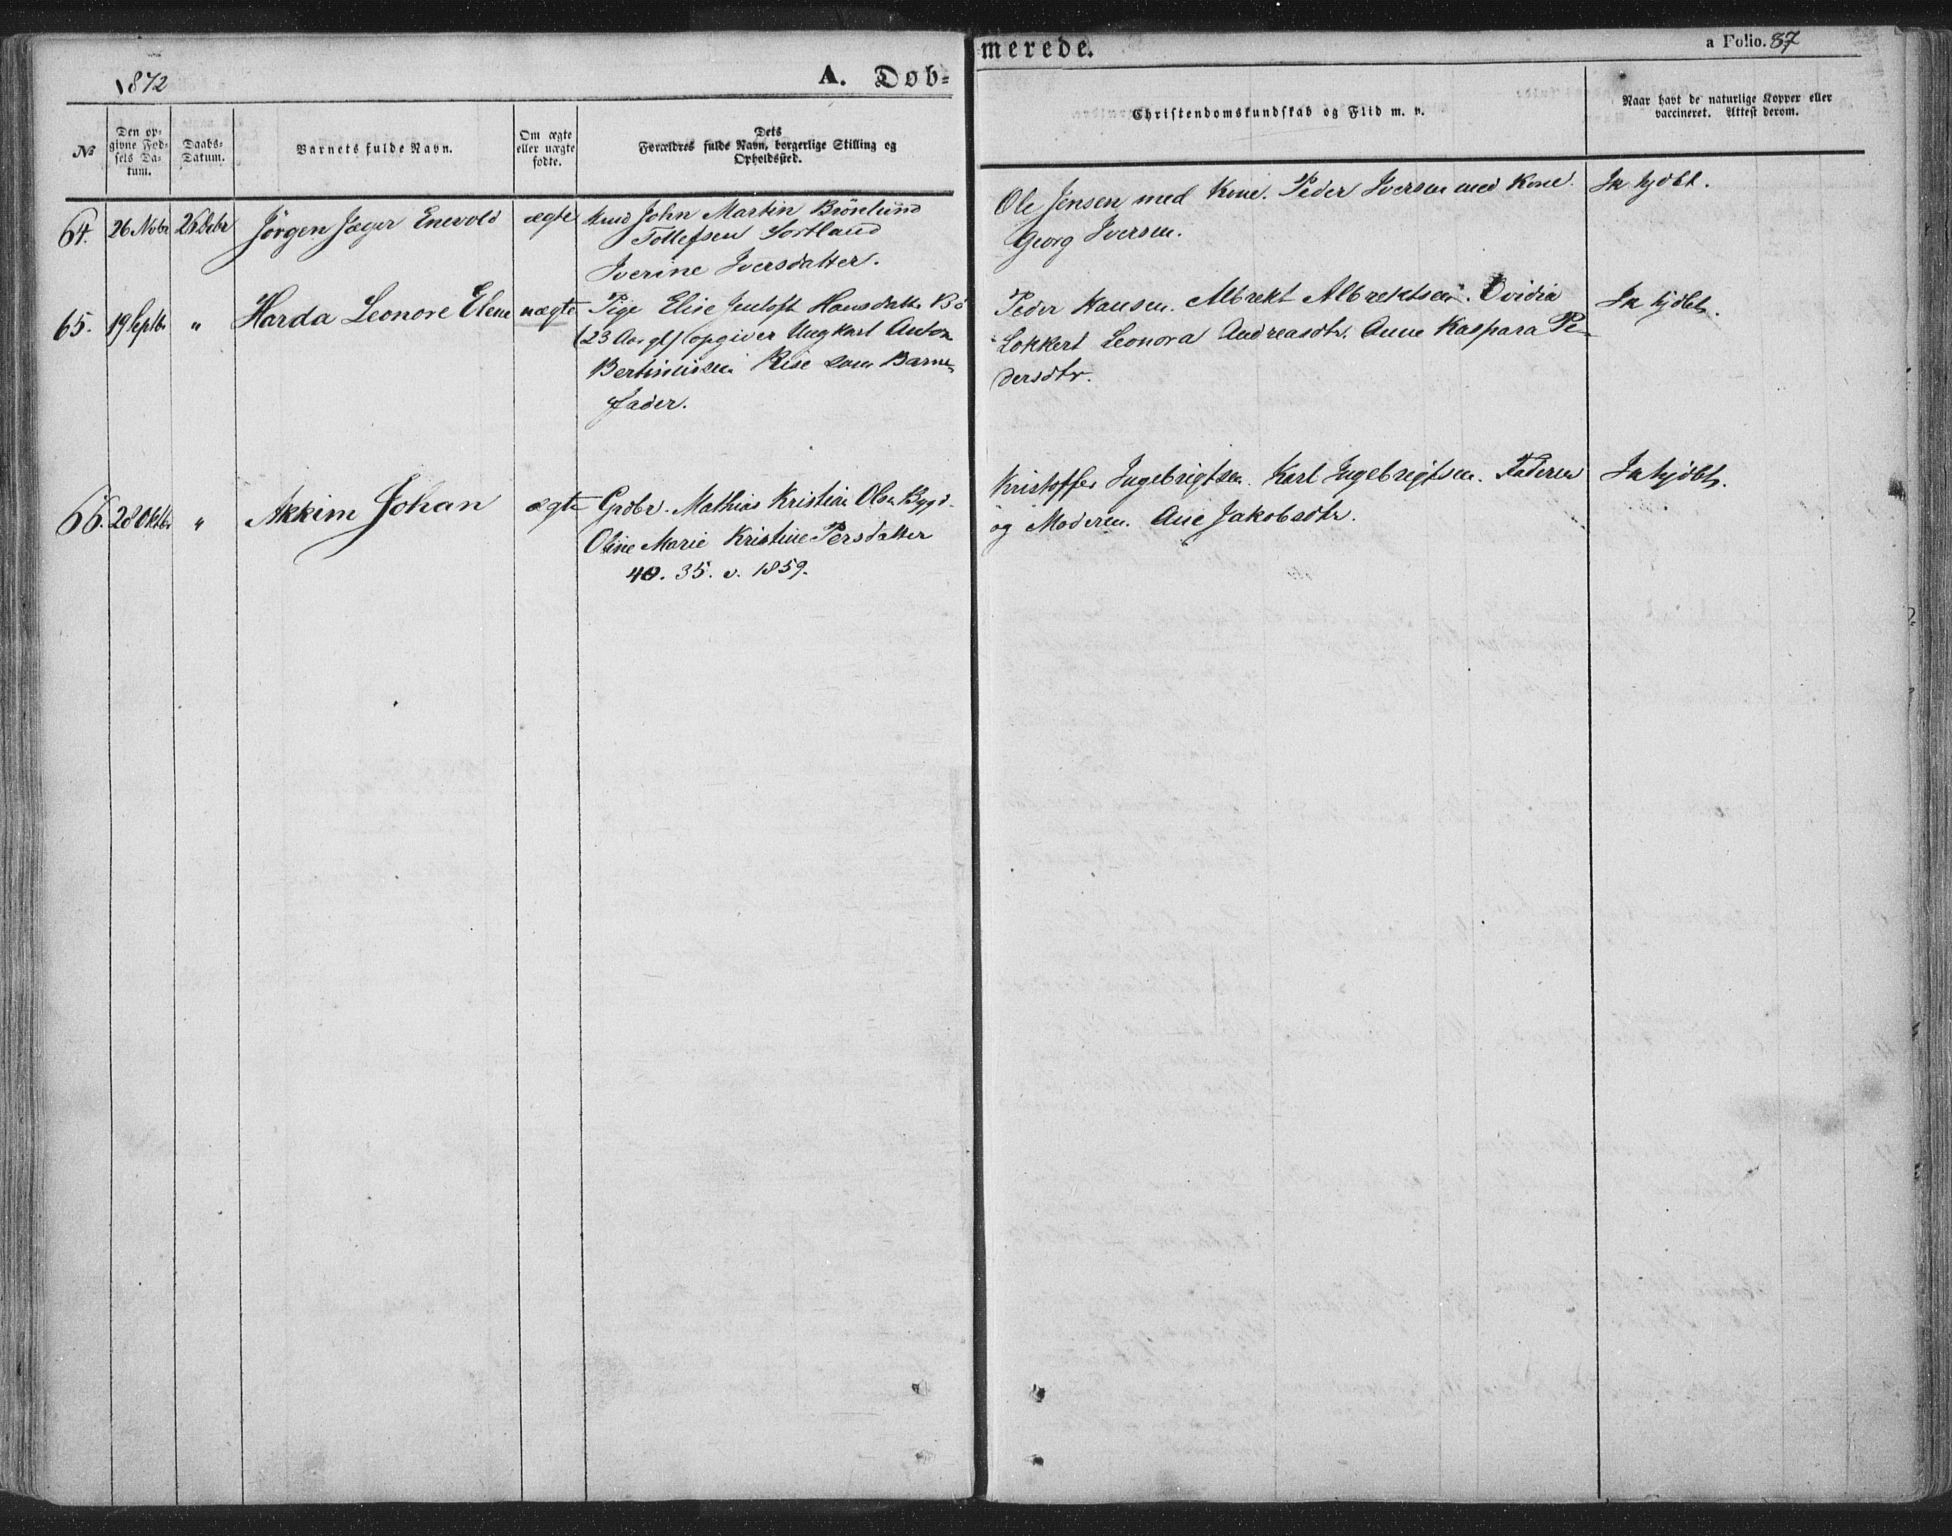 1872
A. Døb=
merede.
a Folio. 87
No
Den op-
givne Fød-
sels Da-
tum.
Daabs-
Datum.
Barnets fulde Navn.
Om ægte
eller uægte
fødte.
Dets
Forældres fulde Navn, borgerlige Stilling og
Opholdssted.
Christendomskundskab og Flid m. v.
Naar havt de naturlige Kopper eller
vaccineret. Attest derom.
64. 26 Novbr 26 Debr Jørgen Jæger Enevold ægte John Martin Brönlund
Tollefsen Sortland
Iverine Iversdatter.
Ole Jensen med Kone. Peder Iversen med Kone.
Georg Iversen.
In hjdbt.
65. 19 Septbr " Harda Leonore Elene uægte Pige Elise Jentoft Hansdatter Bö
(23 Aar gl) (opgiver Ungkarl Anton
Bertiniusen Rise som Barne-
fader.
Peder Hansen. Albrekt Albrektsen. Ovidia
Lokkert Leonora Andreasdtr. Anne Kaspara Pe-
dersdtr.
In hjdbt.
66. 28 Oktbr " Akkim Johan ægte Grdbr. Mathias Kristian Olsen Bygd.
Oline Marie Kristine Persdatter
40. 35. v. 1859.
Kristoffer Ingebrigtsen. Karl Ingebrigtsen. Faderen
og Moderen. Ane Jakobsdtr.
In hjdbt.